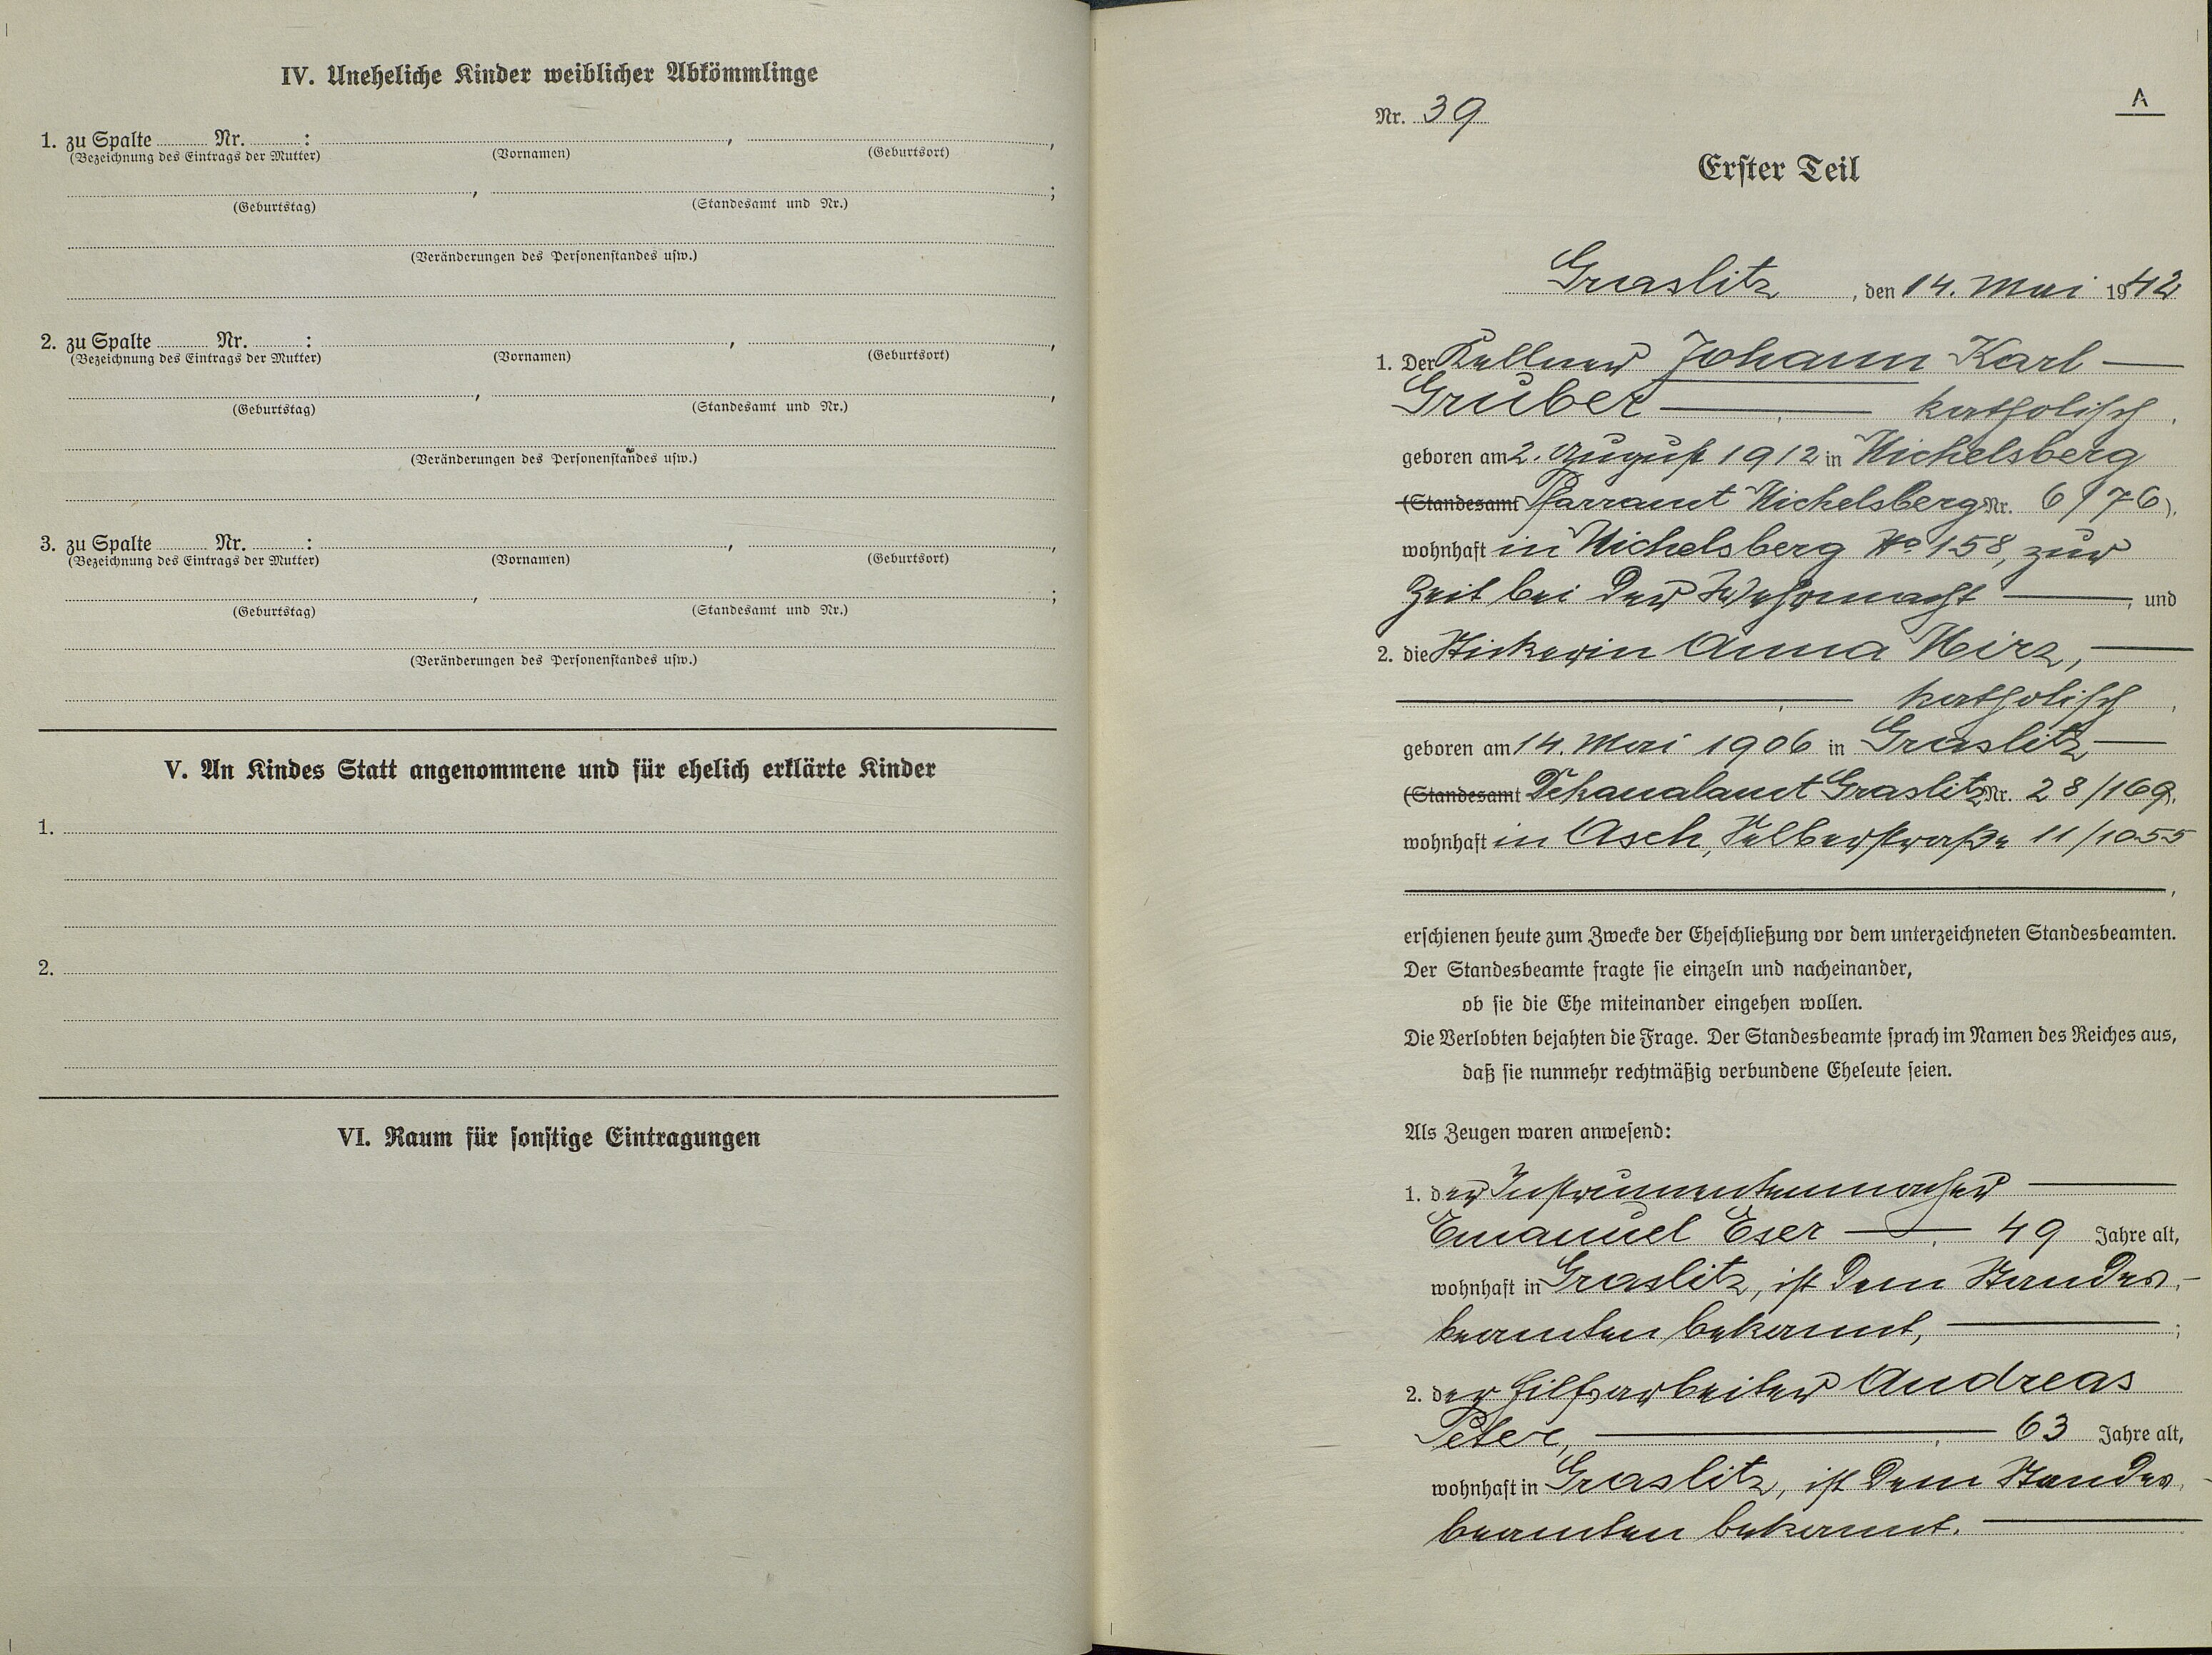 IV. Uneheliche Kinder weiblicher Abkömmlinge
1. zu Spalte Nr. : , ,
(Bezeichnung des Eintrags der Mutter) (Vornamen) (Geburtsort)
, ;
(Geburtstag) (Standesamt und Nr.)
(Veränderungen des Personenstandes usw.)
2. zu Spalte Nr. : , ,
(Bezeichnung des Eintrags der Mutter) (Vornamen) (Geburtsort)
, ,
(Geburtstag) (Standesamt und Nr.)
(Veränderungen des Personenstandes usw.)
3. zu Spalte Nr. : , ,
(Bezeichnung des Eintrags der Mutter) (Vornamen) (Geburtsort)
, ;
(Geburtstag) (Standesamt und Nr.)
(Veränderungen des Personenstandes usw.)
V. An Kindes Statt angenommene und für ehelich erklärte Kinder
1.
2.
VI. Raum für sonstige Eintragungen
A
Nr. 39
Erster Teil
Graslitz, den 14. Mai 1942
1. Der Kellner Johann Karl —
Gruber — , — katholisch,
geboren am 2. August 1912 in Michelsberg
(Standesamt Pfarramt Michelsberg Nr. 6/76),
wohnhaft in Michelsberg No 158, zur
Zeit bei der Wehrmacht —, und
2. die Stickerin Anna Mirz, —
— , — katholisch,
geboren am 14. Mai 1906 in Graslitz —
(Standesamt Dekanalamt Graslitz Nr. 28/169),
wohnhaft in Asch, Selberstraße 11/1055
—,
erschienen heute zum Zwecke der Eheschließung vor dem unterzeichneten Standesbeamten.
Der Standesbeamte fragte sie einzeln und nacheinander,
ob sie die Ehe miteinander eingehen wollen.
Die Verlobten bejahten die Frage. Der Standesbeamte sprach im Namen des Reiches aus,
daß sie nunmehr rechtmäßig verbundene Eheleute seien.
Als Zeugen waren anwesend:
1. der Instrumentenmacher —
Emanuel Eser —, 49 Jahre alt,
wohnhaft in Graslitz, ist dem Standes-
beamten bekannt, —;
2. der Hilfsarbeiter Andreas
Peter, —, — 63 Jahre alt,
wohnhaft in Graslitz, ist dem Standes-
beamten bekannt. —